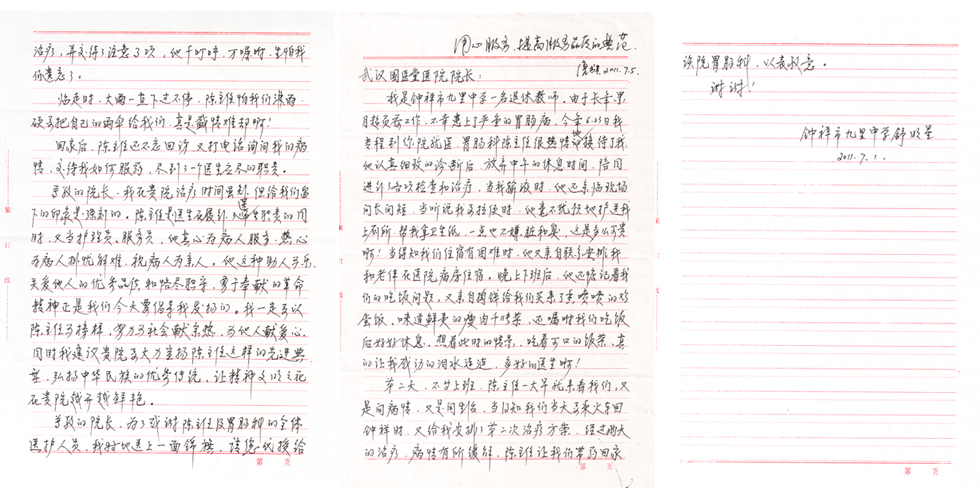 用心服务、提高服务品质的典范
2011.7.5.
武汉国医堂医院院长：
我是钟祥市九里中学一名退休教师。由于长年累
月超负荷工作，不幸患上了严重的胃肠病，今年6.25日我
专程到你院就医，胃肠科陈主任很热情地接待了我，
他认真细致的诊断后，放弃中午的休息时间，陪同
进行了各项检查和治疗，当我输液时，他还亲临现场
问长问短，当听说我要拉便时，他毫不犹豫地护送我
上厕所，帮我拿卫生纸，一点也不嫌脏和臭，这是多么可贵
啊！当得知我们住宿有困难时，他又亲自联系安排我
和老伴在医院病房住宿，晚上下班后，他还惦记着我
们的吃饭问题，又亲自掏钱给我们买来了香喷喷的鸡
蛋饭，味道鲜美的瘦肉千张菜，还嘱咐我们吃饭
后好好休息，想着此时的情景，吃着可口的饭菜，真
的让我感动的泪水连连，多好的医生啊！
第二天，不等上班，陈主任一大早就来看我们，又
是问病情，又是问生活，当得知我们当天要乘火车回
钟祥时，又给我安排了第二次治疗方案，经过两天
的治疗，病情有所缓解，陈主任让我们带药回家
治疗，并交待了注意事项，他千叮咛，万嘱咐，生怕我
们遗忘了。
临走时，大雨一直下过不停，陈主任怕我们淋雨，
硬要把自己的雨伞给我们，真是盛情难却啊！
回家后，陈主任还不忘回访，又打电话询问我的病
情，交待我如何服药，尽到了一个医生应尽的职责。
尊敬的院长，我在贵院治疗时间虽短，但给我们留
下的印象是深刻的。陈主任是医生，在履行医生职责的同
时，又当护理员、服务员，他真心为病人服务，热心
为病人排忧解难，视病人为亲人。他这种助人为乐，
关爱他人的优秀品质和恪尽职守，勇于奉献的革命
精神正是我们今天要倡导我发扬的。我一定要以
陈主任为榜样，努力为社会献余热，为他人献爱心，
同时我建议贵院要大力宣扬陈主任这样的先进典
型，弘扬中华民族的优秀传统，让精神文明之花
在贵院越开越鲜艳。
尊敬的院长，为了感谢陈主任及胃肠科的全体
医护人员，我特地送上一面锦旗，请您代授给
该院胃肠科，以表敬意。
谢谢！
钟祥市九里中学舒
2011.7.1.
第 页
第 页
第 页